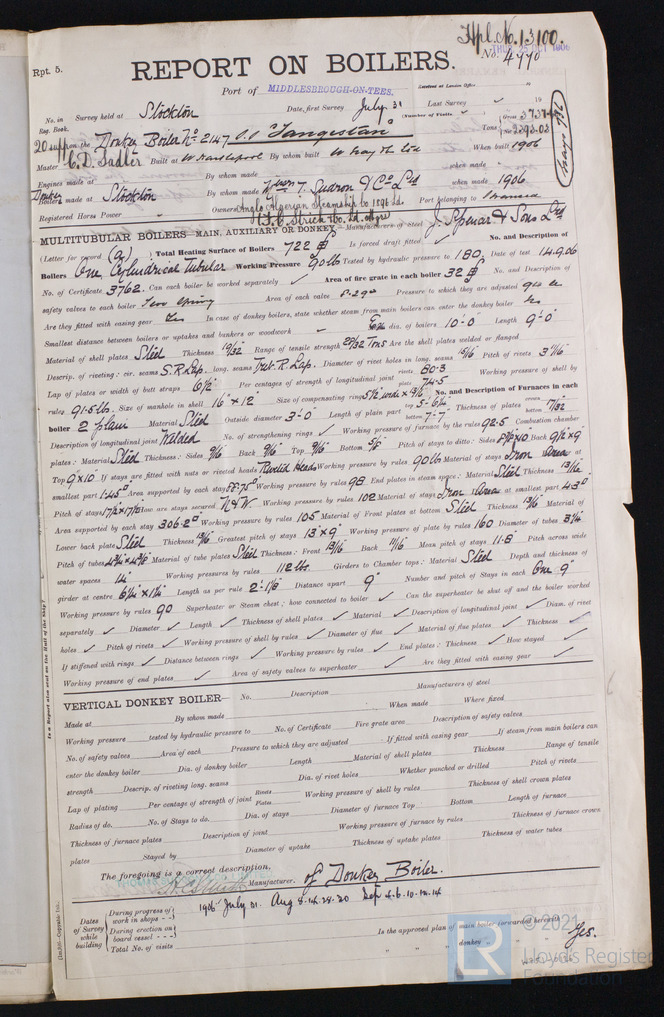 Hpl. No. 13100.
THUR. 25 OCT 1906
No. 4770
Rpt. 5.
REPORT ON BOILERS.
Port of MIDDLESBROUGH-ON-TEES.
Received at London Office 19
No. in Survey held at Stockton Date, first Survey July 31 Last Survey 19
Reg. Book. (Number of Visits )
20 supp on the Donkey Boiler No 2147 S.S "Tangestan" Tons Gross 3737.4 Net 2393.03
Master C. D. Sadler Built at W Hartlepool By whom built W Gray & Co Ld When built 1906
Engines made at By whom made when made
Donkey Boiler made at Stockton By whom made Thos. Sudron & Co Ltd when made 1906
Registered Horse Power Owners Anglo Algerian Steamship Co 1896 Ld. Port belonging to Swansea
F. C. Strick & Co. Ld. Mgrs
MULTITUBULAR BOILERS—MAIN, AUXILIARY OR DONKEY.—Manufacturers of Steel J. Spencer & Sons Ltd
(Letter for record (a)) Total Heating Surface of Boilers 722 Is forced draft fitted No. and Description of
Boilers One Cylindrical Tubular Working Pressure 90 lb Tested by hydraulic pressure to 180 Date of test 14.9.06
No. of Certificate 3762. Can each boiler be worked separately Area of fire grate in each boiler 32 No. and Description of
safety valves to each boiler Two Spring Area of each valve 8.29 Pressure to which they are adjusted
Are they fitted with easing gear Yes In case of donkey boilers, state whether steam from main boilers can enter the donkey boiler
Smallest distance between boilers or uptakes and bunkers or woodwork dia. of boilers 10'-0" Length 9'-0"
Material of shell plates Steel Thickness 19/32 Range of tensile strength 28/32 Tons Are the shell plates welded or flanged
Descrip. of riveting: cir. seams S.R.Lap. long. seams Treb. R. Lap. Diameter of rivet holes in long. seams 15/16 Pitch of rivets 3 11/16
Lap of plates or width of butt straps 6 1/2 Per centages of strength of longitudinal joint rivets 80.3 plate 74.5 Working pressure of shell by
rules 91.5 lbs. Size of manhole in shell 16" x 12" Size of compensating ring 5 1/2 wide x 9/16 No. and Description of Furnaces in each
boiler 2 plain Material Steel Outside diameter 3'-0" Length of plain part top 5-6 1/2 bottom 7-7 Thickness of plates crown bottom 17/32
Description of longitudinal joint Welded No. of strengthening rings Working pressure of furnace by the rules 92.5 Combustion chamber
plates: Material Steel Thickness: Sides 9/16 Back 9/16 Top 9/16 Bottom 5/8 Pitch of stays to ditto: Sides 8 3/4 x 10 Back 9 1/2 x 9
Top 9 x 10 If stays are fitted with nuts or riveted heads Rivetd Heads Working pressure by rules 90 lb Material of stays Iron Area at
smallest part 1.45 Area supported by each stay 88.75 Working pressure by rules 98 End plates in steam space: Material Steel Thickness 13/16
Pitch of stays 17 1/2 x 17 1/2 How are stays secured N & W Working pressure by rules 102 Material of stays Iron Area at smallest part 4.30
Area supported by each stay 306.2 Working pressure by rules 105 Material of Front plates at bottom Steel Thickness 13/16 Material of
Lower back plate Steel Thickness 13/16 Greatest pitch of stays 13 x 9 Working pressure of plate by rules 160 Diameter of tubes 3 1/4
Pitch of tubes 4 3/4 x 4 3/8 Material of tube plates Steel Thickness: Front 13/16 Back 11/16 Mean pitch of stays 11.8 Pitch across wide
water spaces 14 Working pressures by rules 112 lbs. Girders to Chamber tops: Material Steel Depth and thickness of
girder at centre 6 1/2 x 1 1/4 Length as per rule 2'-1 1/8 Distance apart 9" Number and pitch of Stays in each One 9"
Working pressure by rules 90 Superheater or Steam chest; how connected to boiler Can the superheater be shut off and the boiler worked
separately Diameter Length Thickness of shell plates Material Description of longitudinal joint Diam. of rivet
holes Pitch of rivets Working pressure of shell by rules Diameter of flue Material of flue plates Thickness
If stiffened with rings Distance between rings Working pressure by rules End plates: Thickness How stayed
Working pressure of end plates Area of safety valves to superheater Are they fitted with easing gear
VERTICAL DONKEY BOILER— No. Description Manufacturers of steel
Made at By whom made When made Where fixed
Working pressure tested by hydraulic pressure to No. of Certificate Fire grate area Description of safety valves
No. of safety valves Area of each Pressure to which they are adjusted If fitted with easing gear If steam from main boilers can
enter the donkey boiler Dia. of donkey boiler Length Material of shell plates Thickness Range of tensile
strength Descrip. of riveting long. seams Dia. of rivet holes Whether punched or drilled Pitch of rivets
Lap of plating Per centage of strength of joint Rivets Plates Working pressure of shell by rules Thickness of shell crown plates
Radius of do. No. of Stays to do. Dia. of stays Diameter of furnace Top Bottom Length of furnace
Thickness of furnace plates Description of joint Working pressure of furnace by rules Thickness of furnace crown
plates Stayed by Diameter of uptake Thickness of uptake plates Thickness of water tubes
The foregoing is a correct description,
Manufacturer. of Donkey Boiler.
Dates of Survey while building
During progress of work in shops - - 1906 July 31. Aug 8.14.28.20 Sep 4.6.10.12.14
During erection on board vessel - - -
Total No. of visits
Is the approved plan of main boiler forwarded herewith Yes.
" " " donkey " "
Is a Report also sent on the Hull of the Ship?
© 2021
LR
Lloyd's Register
Foundation